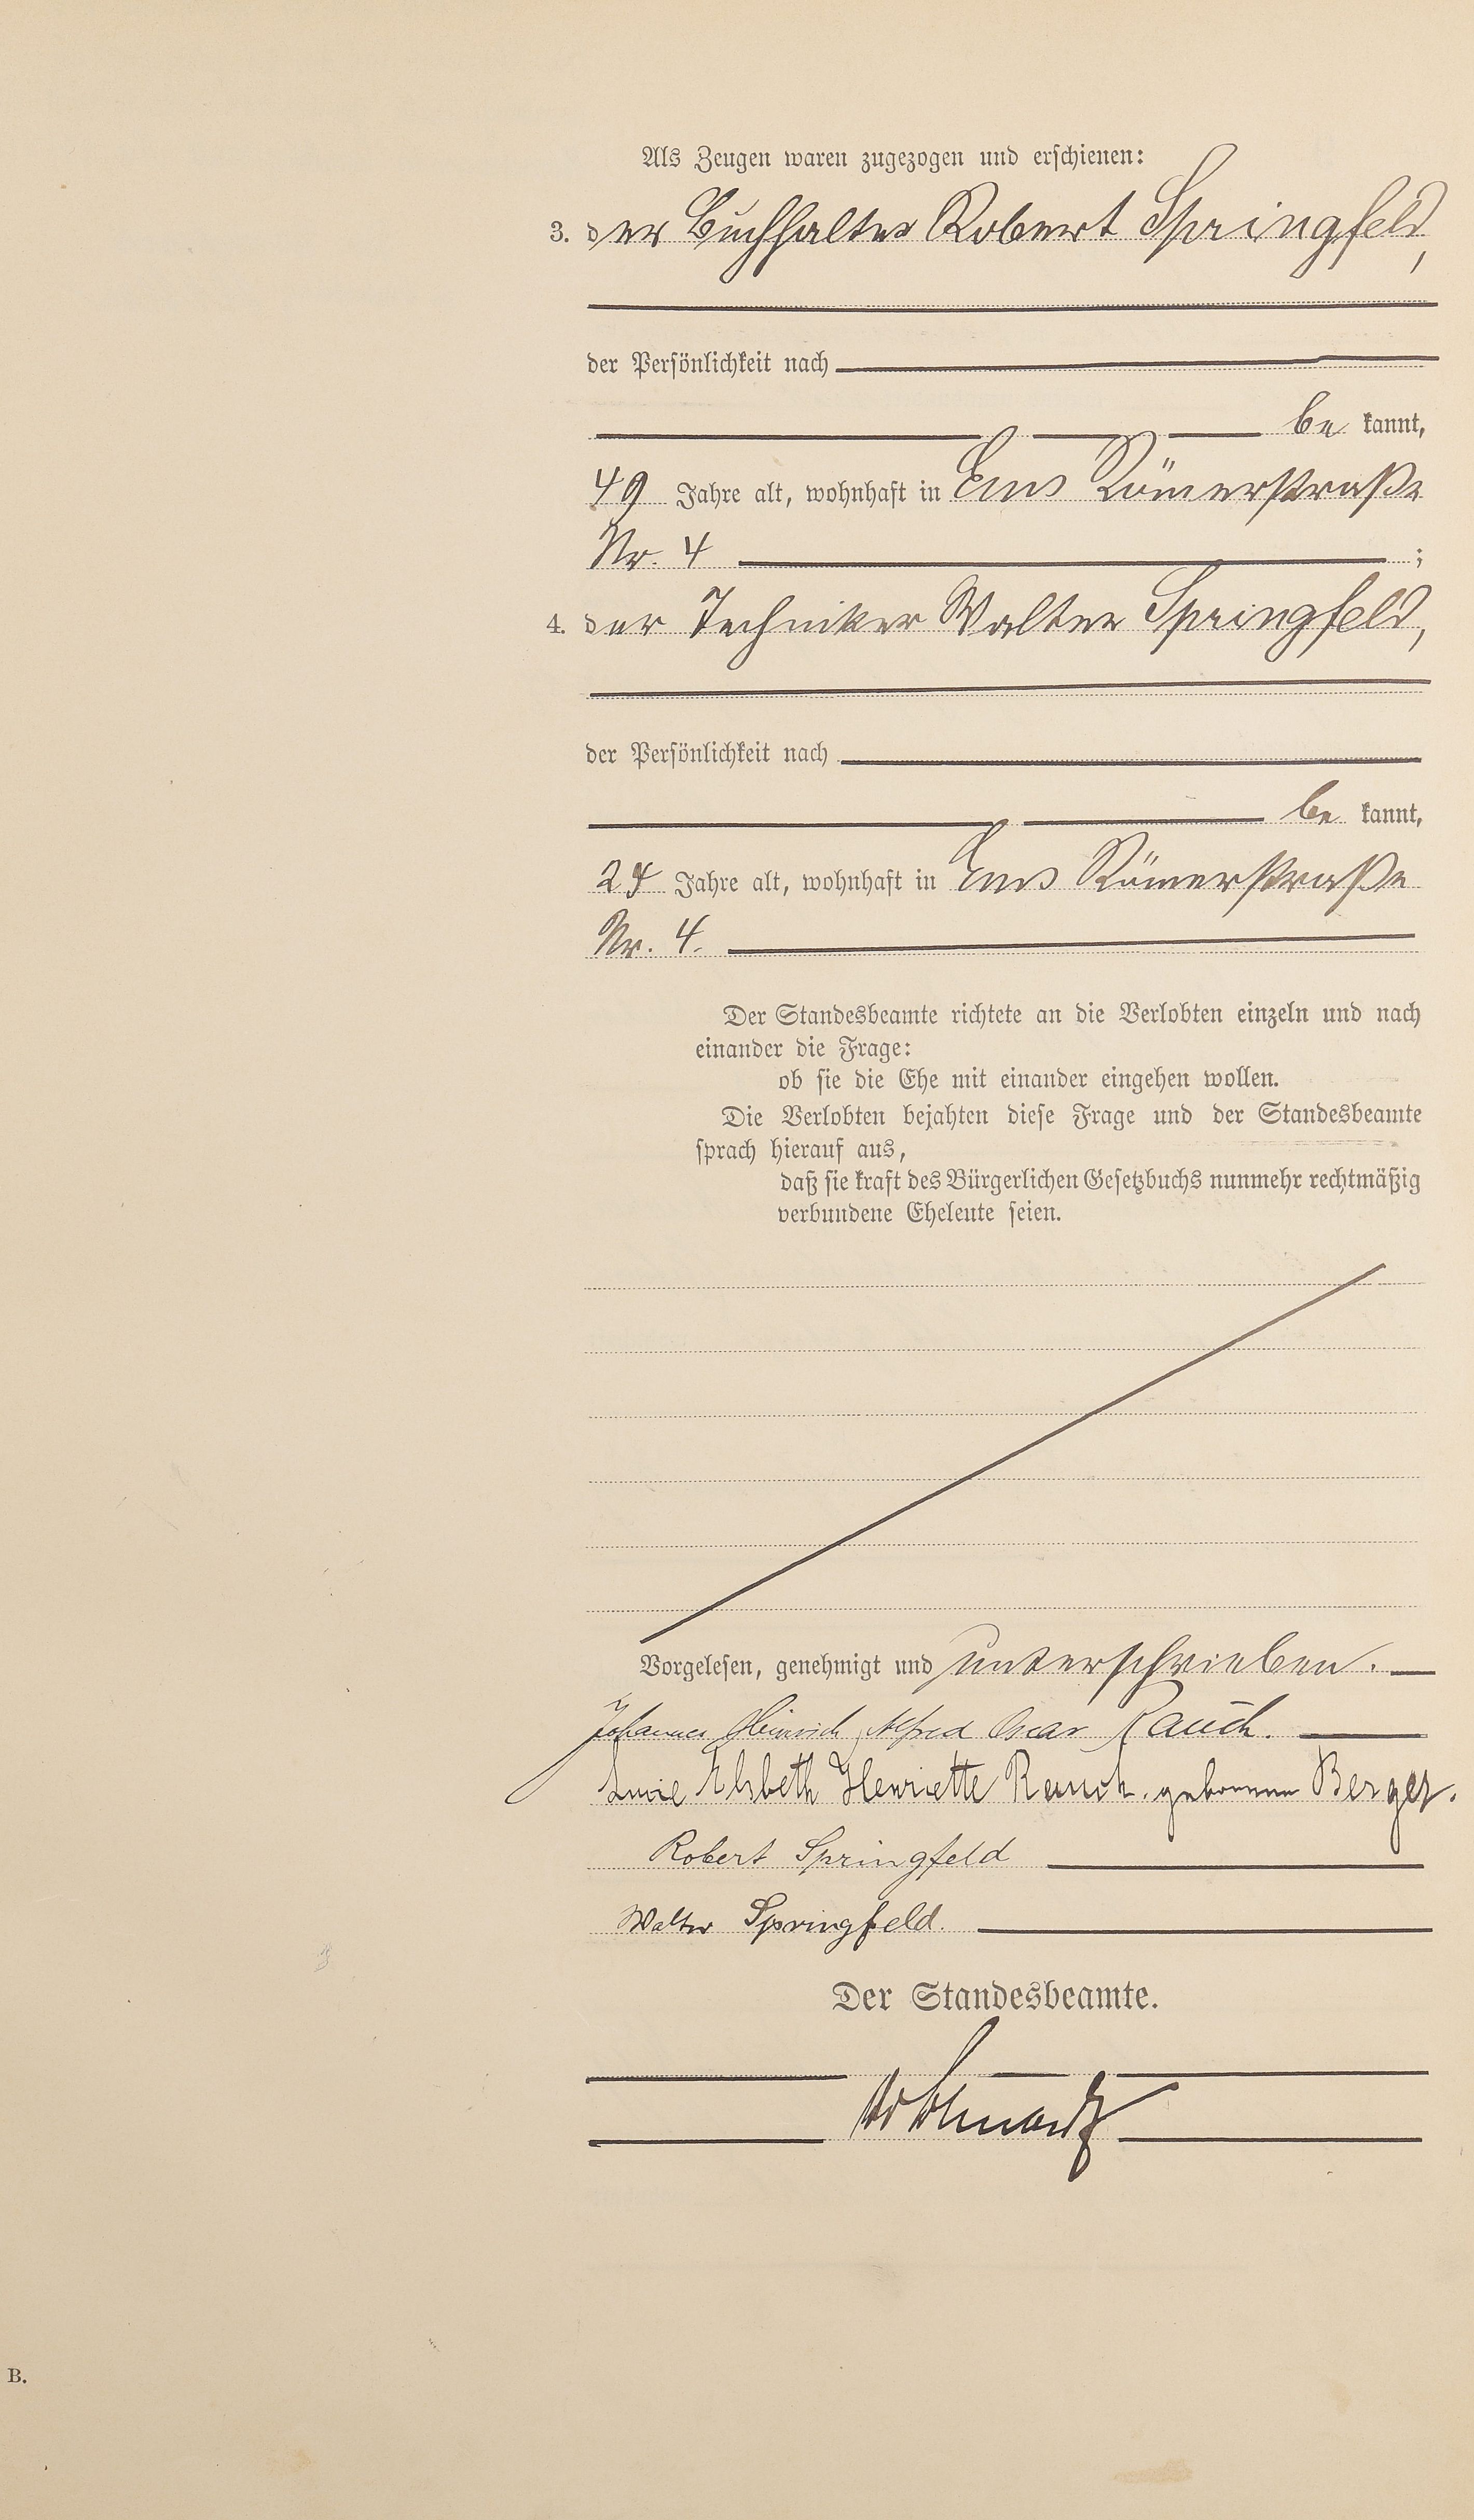 Als Zeugen waren zugezogen und erschienen:
3. der Buchhalter Robert Springfeld,
der Persönlichkeit nach
be kannt,
49 Jahre alt, wohnhaft in Ems Römerstraße
Nr. 4 ;
4. der Techniker Walter Springfeld,
der Persönlichkeit nach
be kannt,
24 Jahre alt, wohnhaft in Ems Römerstraße
Nr. 4.
Der Standesbeamte richtete an die Verlobten einzeln und nach
einander die Frage:
ob sie die Ehe mit einander eingehen wollen.
Die Verlobten bejahten diese Frage und der Standesbeamte
sprach hierauf aus,
daß sie kraft des Bürgerlichen Gesetzbuchs nunmehr rechtmäßig
verbundene Eheleute seien.
Vorgelesen, genehmigt und unterschrieben.
Johannes Heinrich Alfred Oscar Rauch.
Elsbeth Henriette Rauch, geborene Berger.
Robert Springfeld
Walter Springfeld.
Der Standesbeamte.
B.